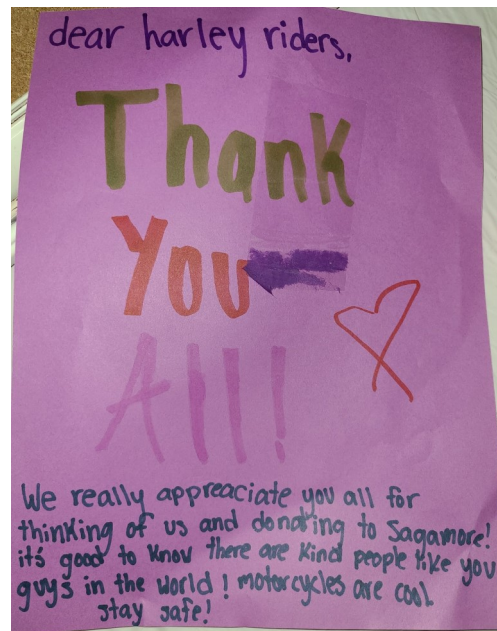 dear harley riders,
Thank
You
All!
We really appreaciate you all for
thinking of us and donating to Sagamore!
it's good to know there are kind people like you
guys in the world! motorcycles are cool
stay safe!